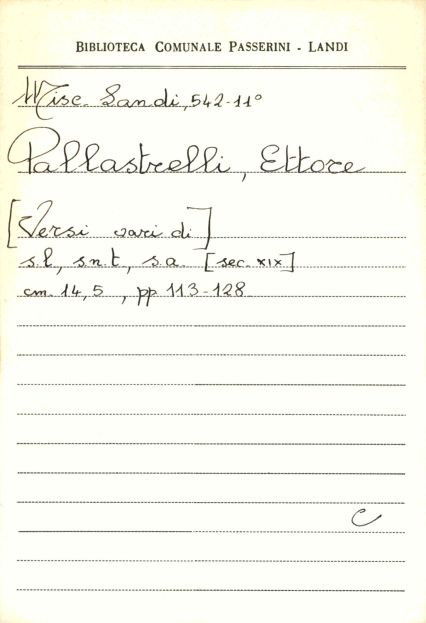 BIBLIOTECA COMUNALE PASSERINI - LANDI
Misc. Landi, 542-11°
Pallastrelli, Ettore
[Versi vari di]
s.l, s.n.t, s.a. [sec. XIX]
cm. 14,5 , pp 113-128
C